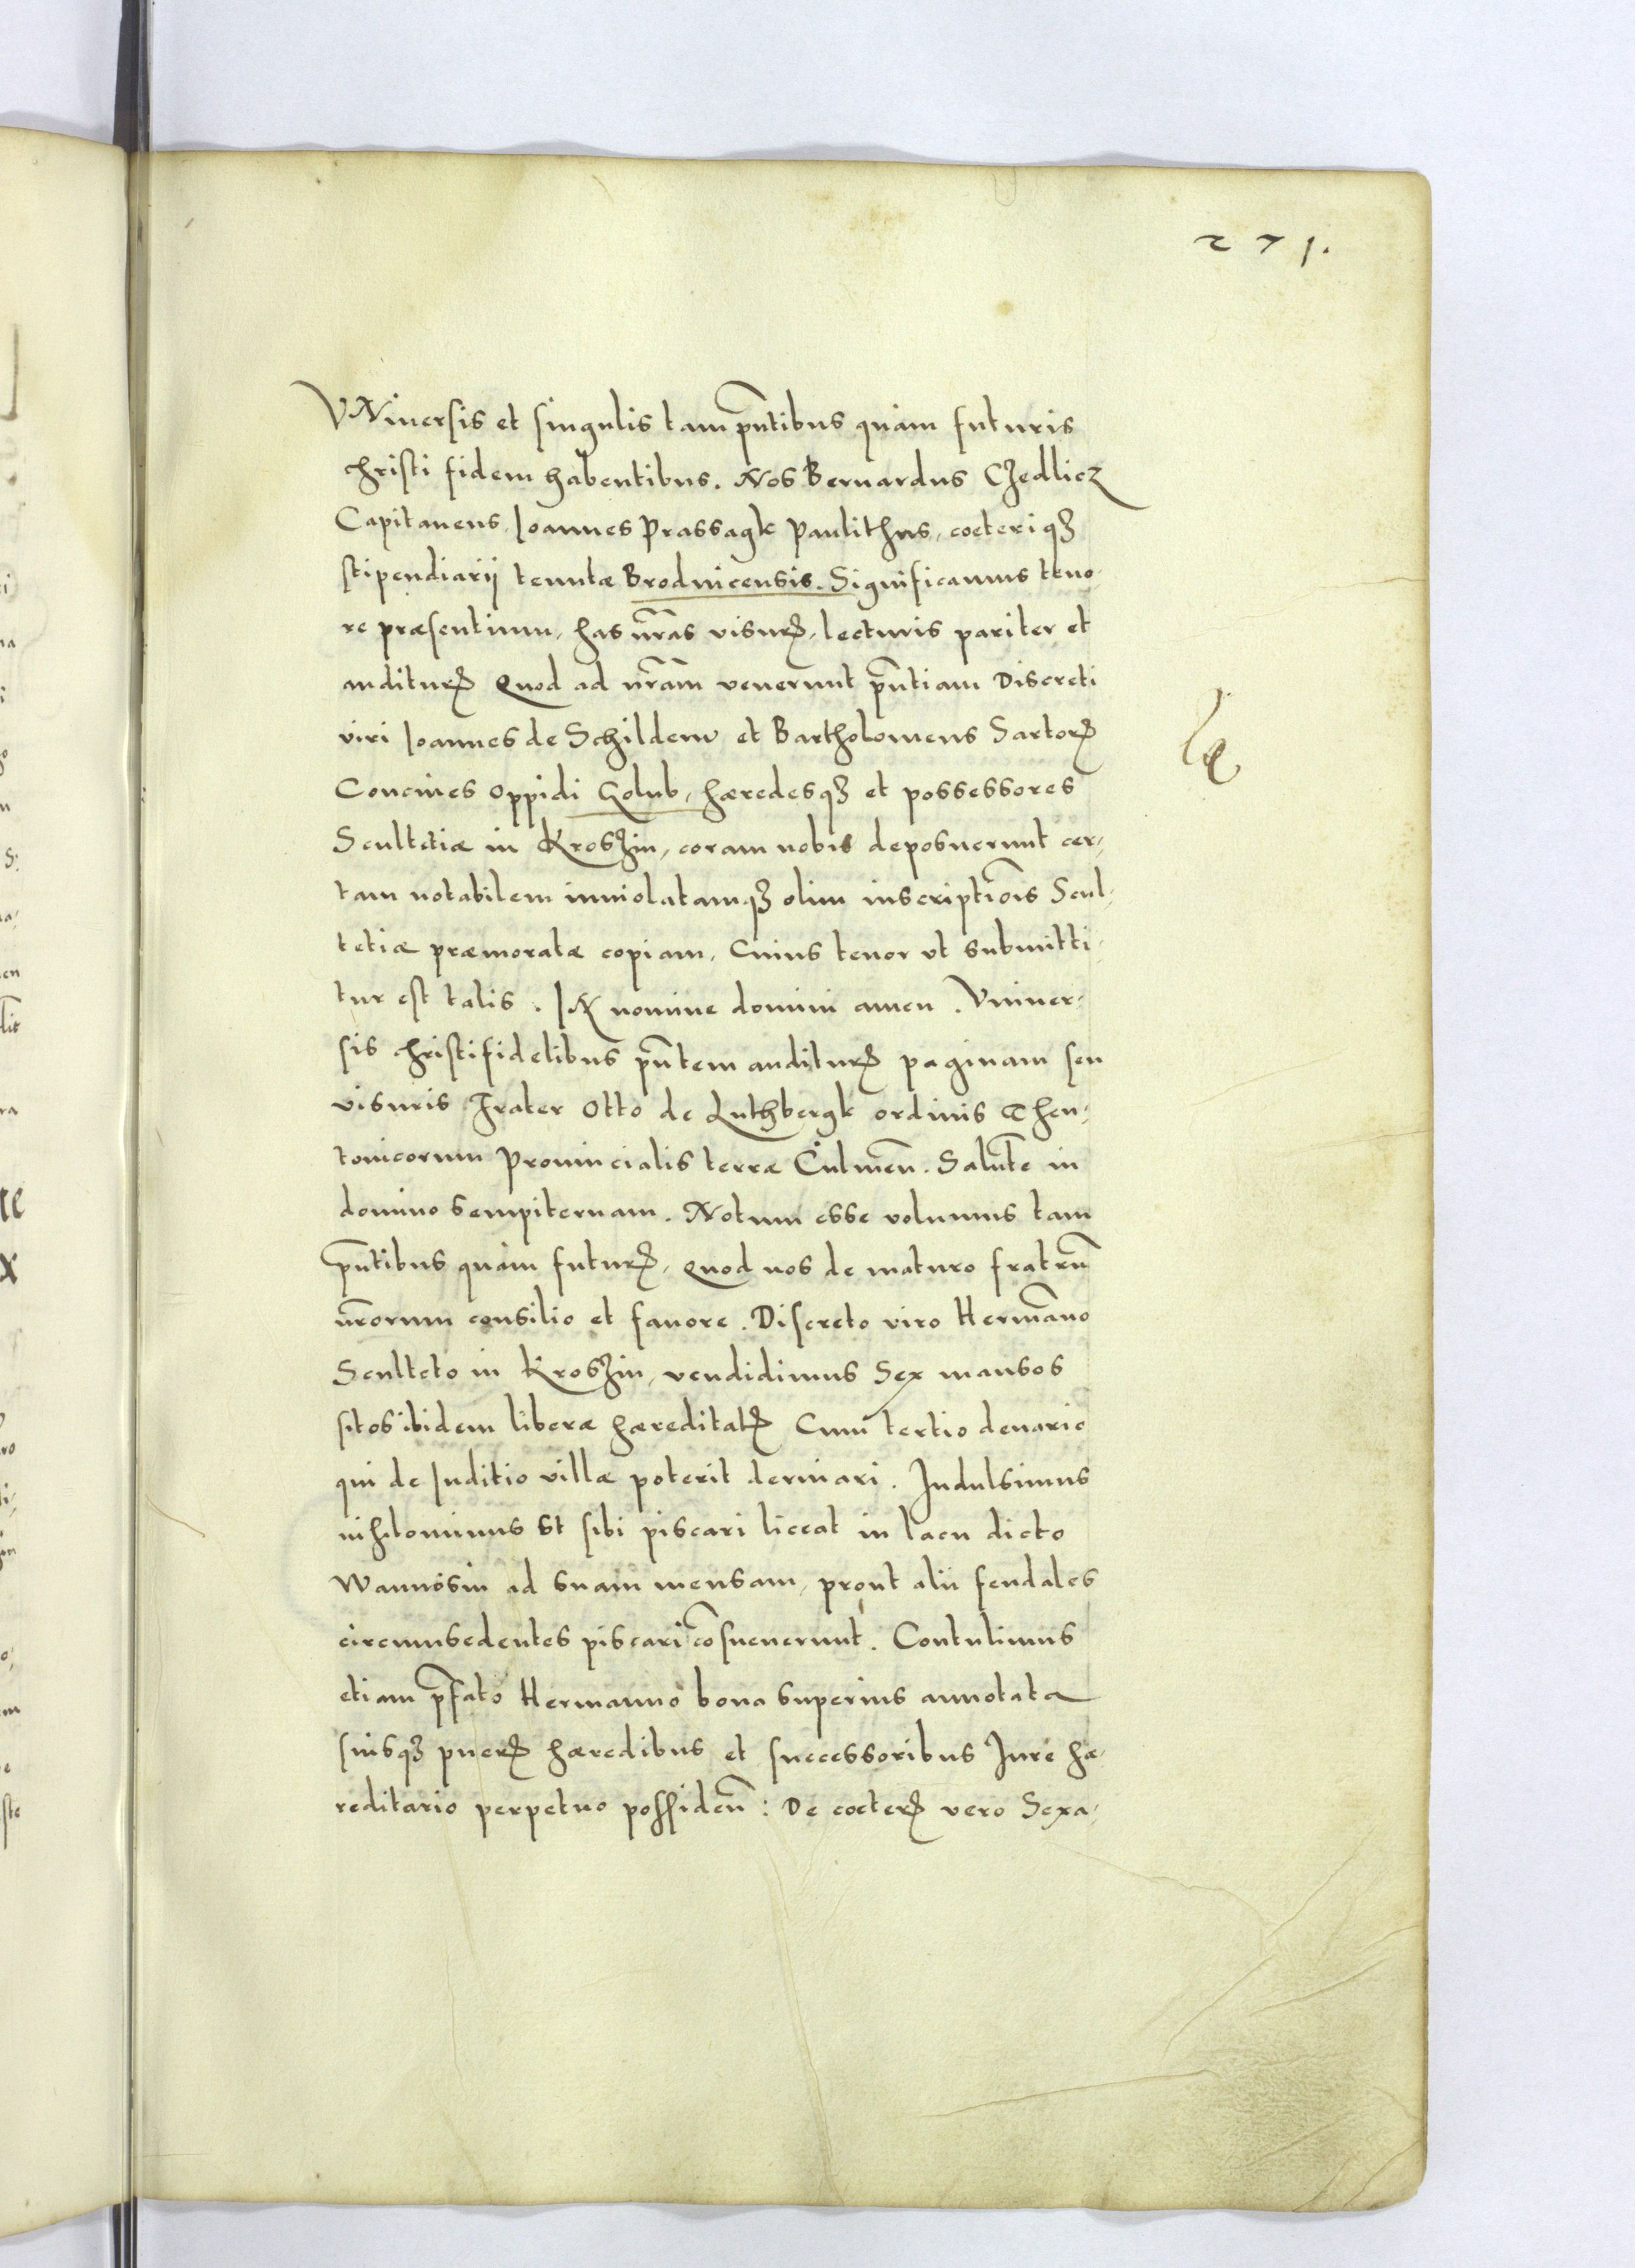 271.
VNiuersis et singulis tam pñtibus quàm futuris
christi fidem habentibus. Nos Bernardus CZedlicz
Capitaneus, Ioannes Prassagk Paulithus, coeteriqꝫ
stipendiarij tenutæ Brodnicensis. Significamus teno-
re præsentium, has nr̃as visurꝭ, lecturis pariter et
auditurꝭ Quod ad nr̃am venerunt pñtiam Discreti
viri Ioannes de Schildem et Bartholomeus Sartorꝭ
Conciues oppidi Golub, hæredesqꝫ et possessores
Scultetiæ in KrosZin, coram nobis deposuerunt cer-
tam notabilem inuiolatamqꝫ olim inscriptiõis Scul-
tetiæ præmoratæ copiam, Cuius tenor vt submitti-
tur est talis. IN nomine domini amen. Vniuer-
sis christifidelibus pñtem auditurꝭ paginam seu
visuris Frater Otto de Luthbergk ordinis Theu-
tonicorum Prouincialis terræ Culmeñ. Salut̃e in
domino sempiternam. Notum esse volumus tam
pñtibus quàm futurꝭ, Quod nos de maturo fratrũ
nr̃orum consilio et fauore. Discreto viro Herm̃ano
Sculteto in KrosZin, vendidimus Sex mansos
sitos ibidem liberæ hæreditatꝭ Cum tertio denario
qui de Juditio villæ poterit deriuari. Indulsimus
nihilominus Vt sibi piscari liceat in lacu dicto
Wannosin ad suam mensam, prout alii feudales
circumsedentes piscari cõsueuerunt. Contulimus
etiam p̃fato Hermanno bona superius annotata
suisqꝫ puerꝭ hæredibus et successoribus Jure hæ-
reditario perpetuo possideñ: De coeterꝭ vero Sexa-